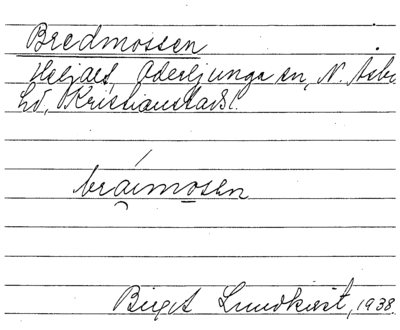 Bredmossen
Heljalt, Oderljunga sn, N. Åsbo
hd, Kristianstads l.
bräımosen
Birgit Lundkvist, 1938.